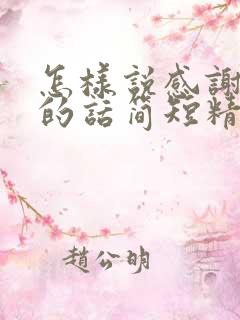 怎樣説感謝
的話简短精
趙公明